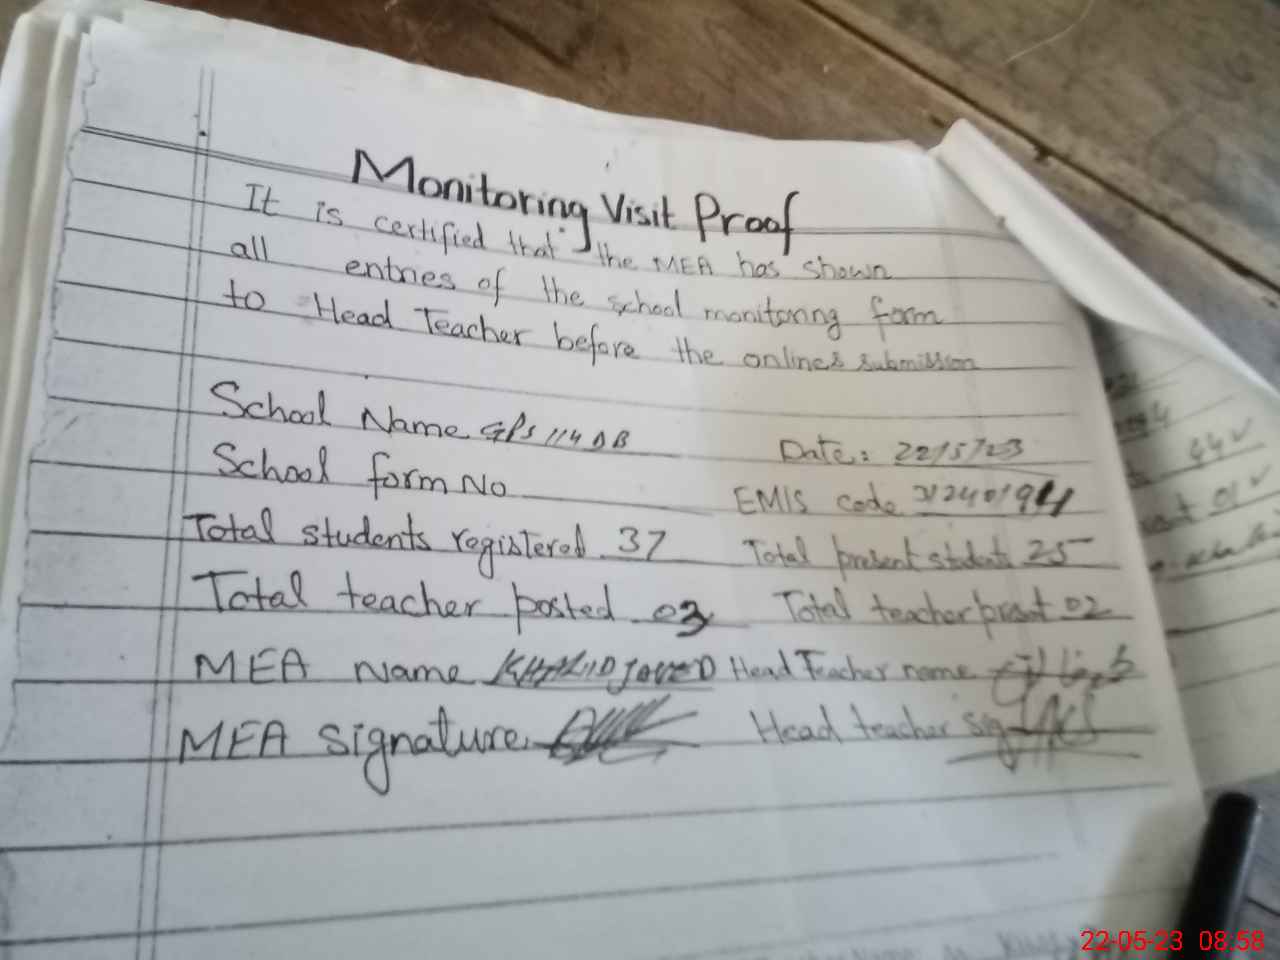 Monitoring Visit Proof
It is certified that the MEA has shown
all entries of the school monitoring form
to Head Teacher before the onlines submission
School Name GPS 114 DB Date: 22/5/23
School form No EMIS code
Total students registered 37 Total present students 25
Total teacher posted 03 Total teacher prsnt 02
MEA Name KHALID JAVED Head Teacher name
MEA signature Head teacher sig
44
01
22-05-23 08:58